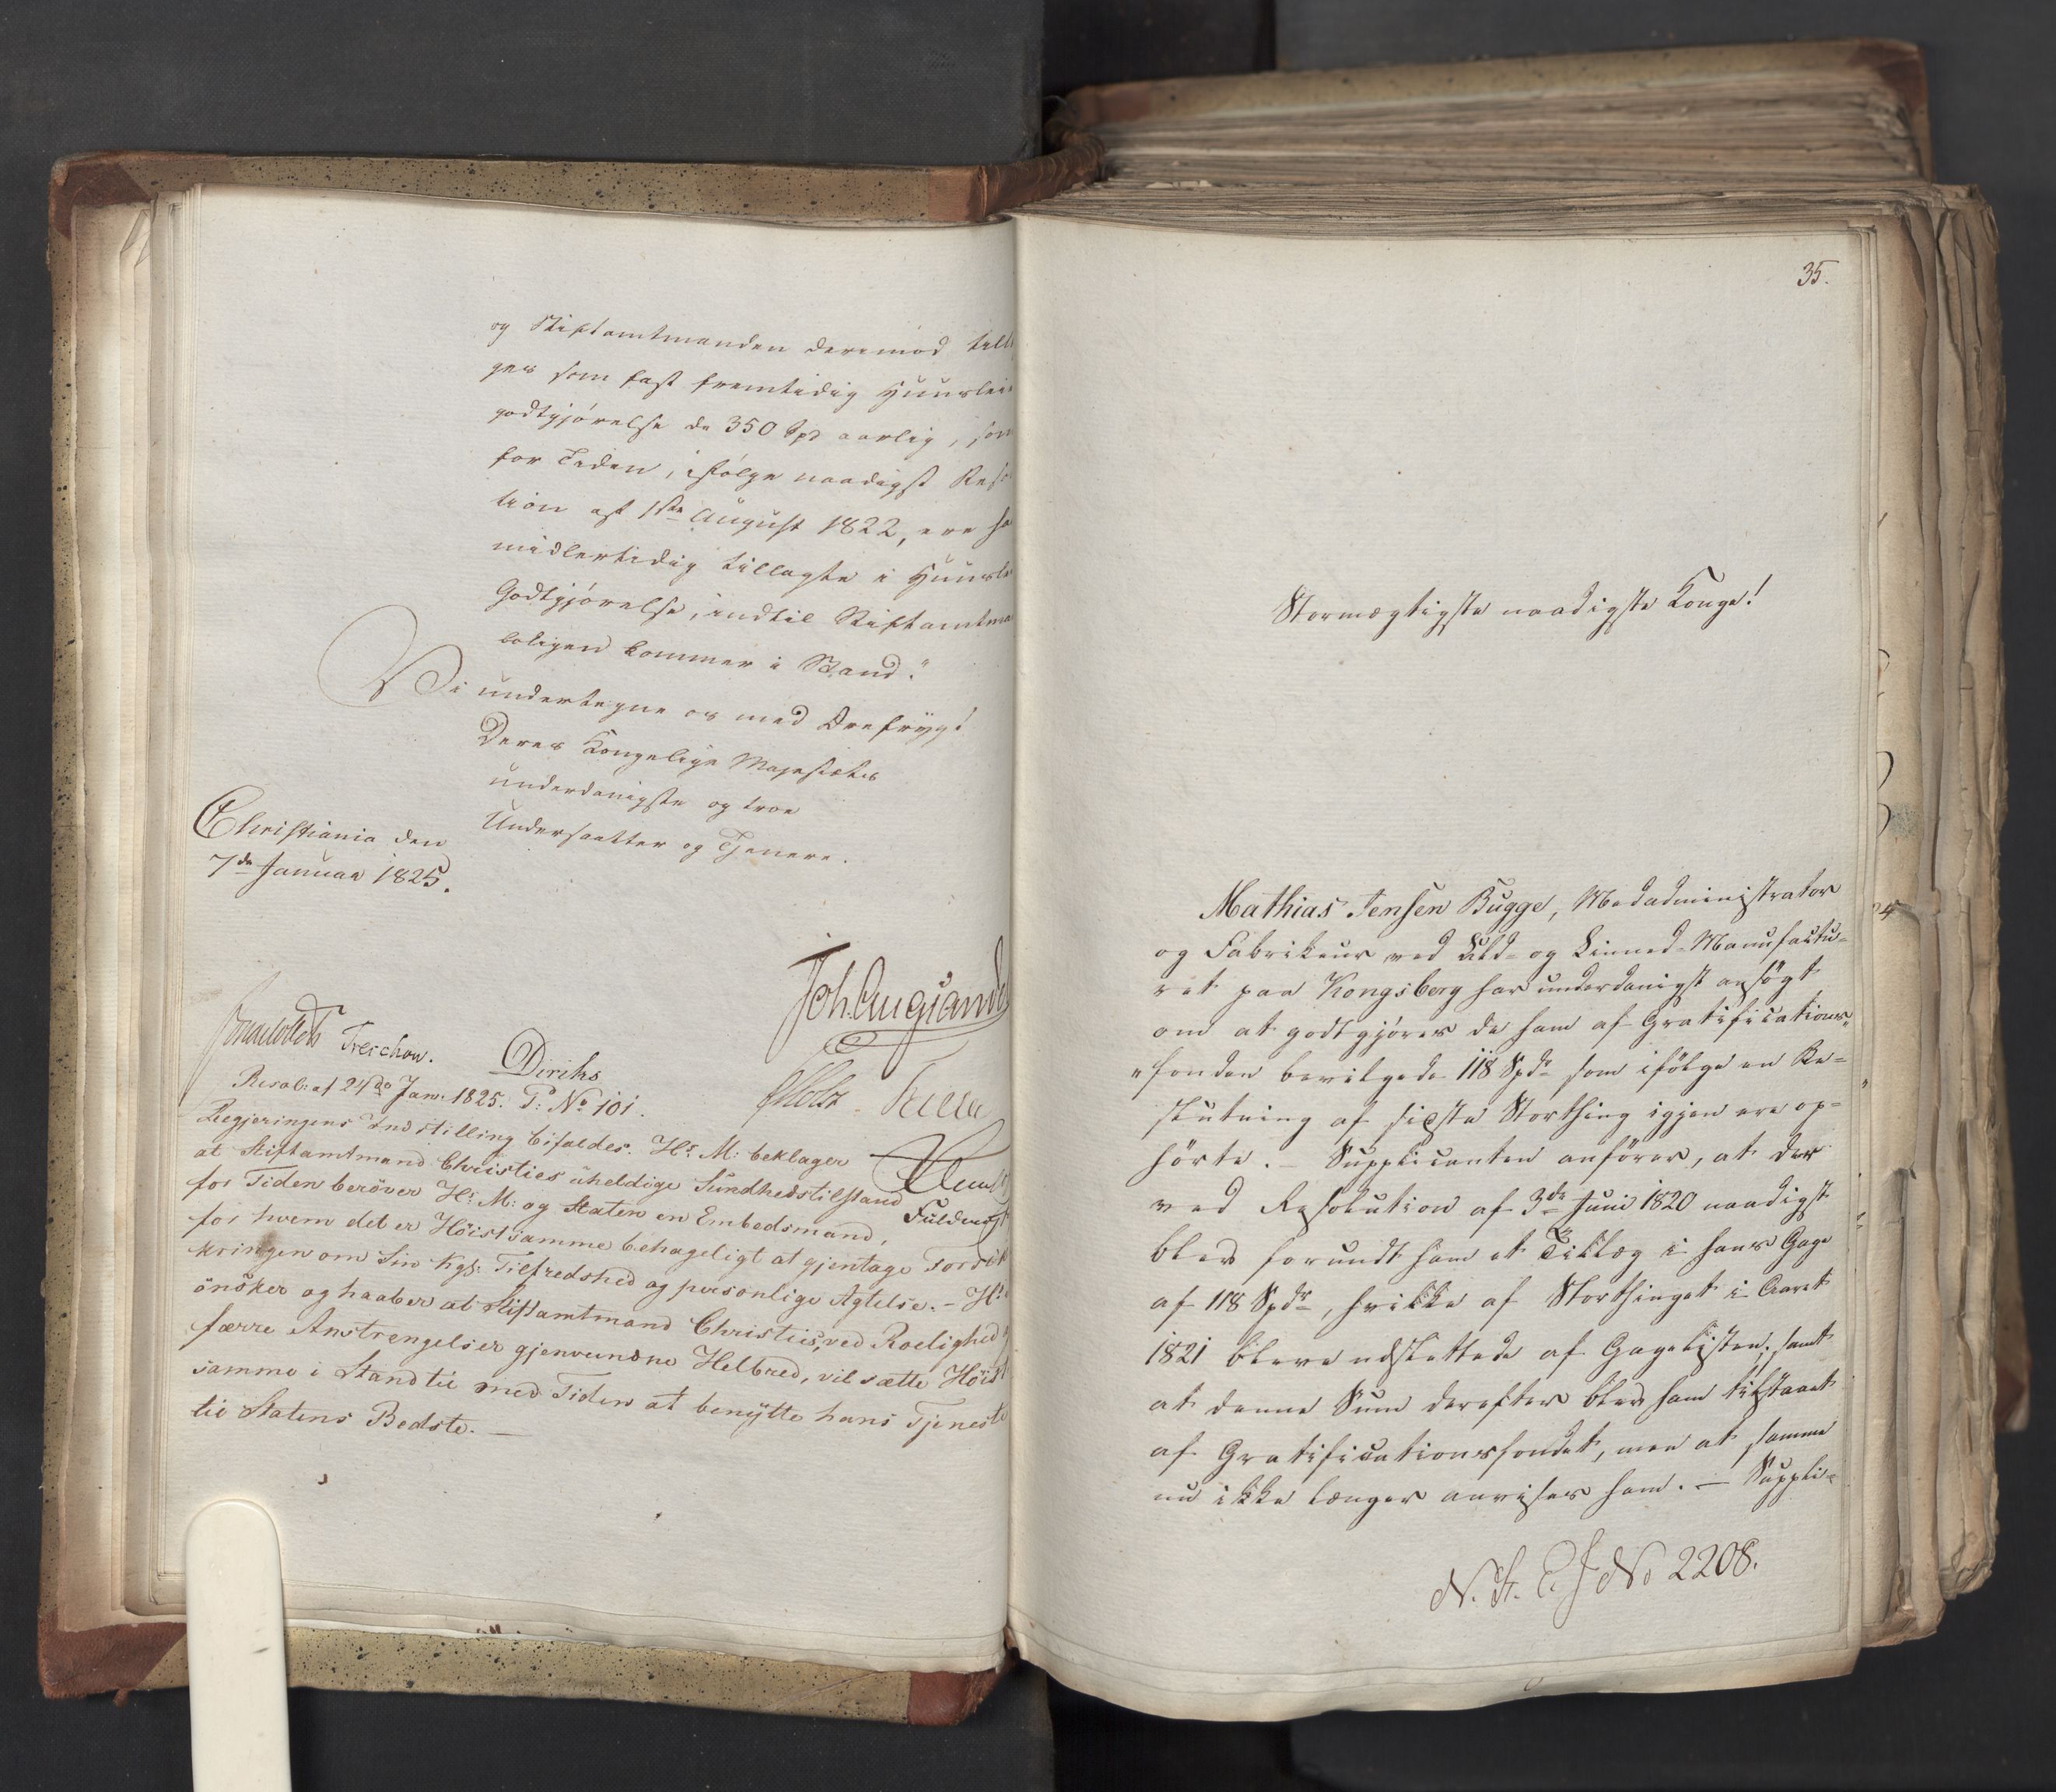 og Stiftamtmanden derimod till
ges som fast fremtidig Huuslei
godtgjørelse de 350 Spd aarlig, som
for Tiden, ifølge naadigst Reso
tion af 1ste August 1822, ere ha
midlertidig tillagte i Huusle
Godtgjørelse, indtil Stiftamtma
boligen kommer i Stand."
Vi undertegne os med Ærefrygt
Deres Kongelige Majestæts
underdanigste og troe
Undersaatter og Tjenere.
Christiania den
7de Januar 1825.
Joh. Aug. Sande
Treschow.
Diriks
Holst
Fuldmægt
Resol: af 24de Jan: 1825. P: No 101.
Regjeringens Indstilling bifaldes. Hs. M: beklager
at Stiftamtmand Christies uheldige Sundhedstilstand
for Tiden berøver Hs. M: og Staten en Embedsmand,
for hvem det er Høistsamme behageligt at gjentage Forsik
kringen om Sin Kgl: Tilfredshed og personlige Agtelse. – Hs.
önsker og haaber at Stiftamtmand Christies, ved Roelighed
færre Anstrengelser gjenvundne Helbred, vil sætte Høist
samme i Stand til med Tiden at benytte hans Tjeneste
til Statens Bedste. —
35.
Stormægtigste naadigste Konge!
Mathias Jensen Bugge, Medadministrator
og Fabrikeur ved Uld- og Linned-Manufactu-
ret paa Kongsberg har underdanigst ansøgt
om at godtgjøres de ham af Gratifications-
"fonden bevilgede 118 Spdr som ifølge en Be-
slutning af sidste Storthing igjen ere op-
hørte. – Supplicanten anfører, at der
ved Resolution af 3de Juni 1820 naadigst
blev forundt ham et Tillæg i hans Gage
af 118 Spdr, hvilke af Storthinget i Aaret
1821 bleve udslettede af Gagelisten; samt
at denne Sum derefter blev ham tilstaaet
af Gratificationsfondet, men at samme
nu ikke længer anvises ham. — Suppli-
N. St. E. J No 2208.